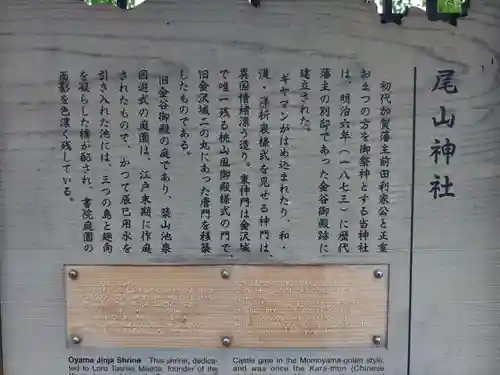 尾山神社
初代加賀藩主前田利家公と正室
おまつの方を御祭神とする当神社
は、明治六年（一八七三）に歴代
藩主の別邸であった金谷御殿跡に
建立された。
ギヤマンがはめ込まれたり、和・
漢・洋折衷様式を見せる神門は、
異国情緒漂う造り。東神門は金沢城
で唯一残る桃山風御殿様式の門で、
旧金沢城二の丸にあった唐門を移築
したものである。
旧金谷御殿の庭であり、築山池泉
回遊式の庭園は、江戸末期に作庭
されたもので、かつて辰巳用水を
引き入れた池には、三つの島と趣向
を凝らした橋が配され、書院庭園の
面影を色濃く残している。
Oyama Jinja Shrine This shrine, dedica-
ted to Lord Toshiie Maeda, founder of the
Castle gate in the Momoyama-goten style,
and was once the Kara-mon (Chinese